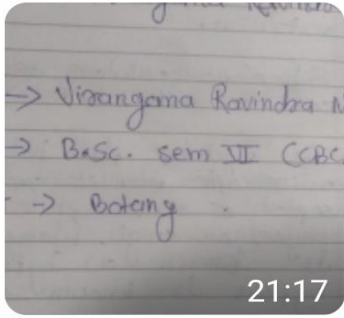 -> Virangama Ravindra N
-> B.Sc. sem VI (CBC
-> Botany
21:17